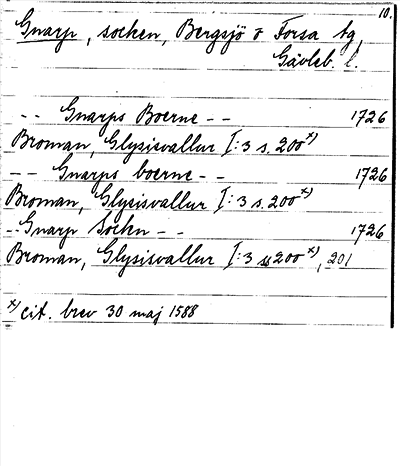 10.
Gnarp, socken, Bergsjö o Forsa tg
Gävleb. l.
-- Gnarps Boerne -- 1726
Broman, Glysisvallur I:3 s. 200 x)
-- Gnarps boerne -- 1726
Broman, Glysisvallur I:3 s. 200 x)
-- Gnarp Sochn -- 1726
Broman, Glysisvallur I:3 ss 200 x), 201
x) cit. brev 30 maj 1588